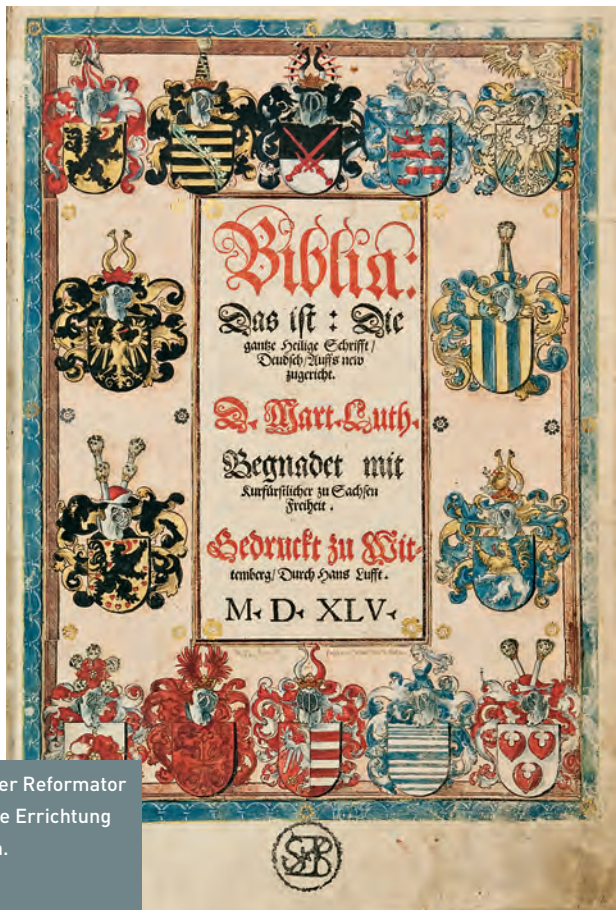 Biblia:
Das ist: Die
gantze Heilige Schrifft/
Deudsch/Auffs new
zugericht.
D. Mart. Luth.
Begnadet mit
Kurfürstlicher zu Sachsen
Freiheit.
Gedruckt zu Wit-
temberg/Durch Hans Lufft.
M. D. XLV.
er Reformator
e Errichtung
.